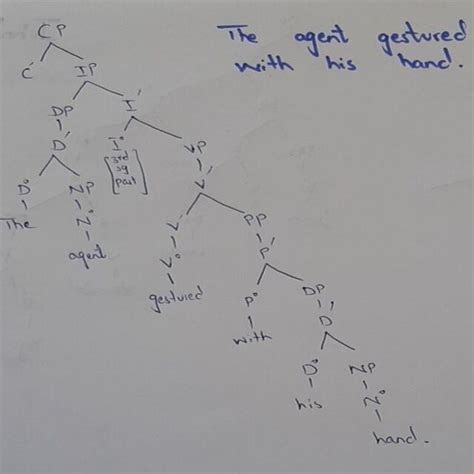 The agent gestured
with his hand.
CP
C' IP
DP I'
D' I° VP
3rd
sg
past
D° NP V'
The N° V' PP
agent V° P'
gestured P° DP
with D'
D° NP
his N°
hand.